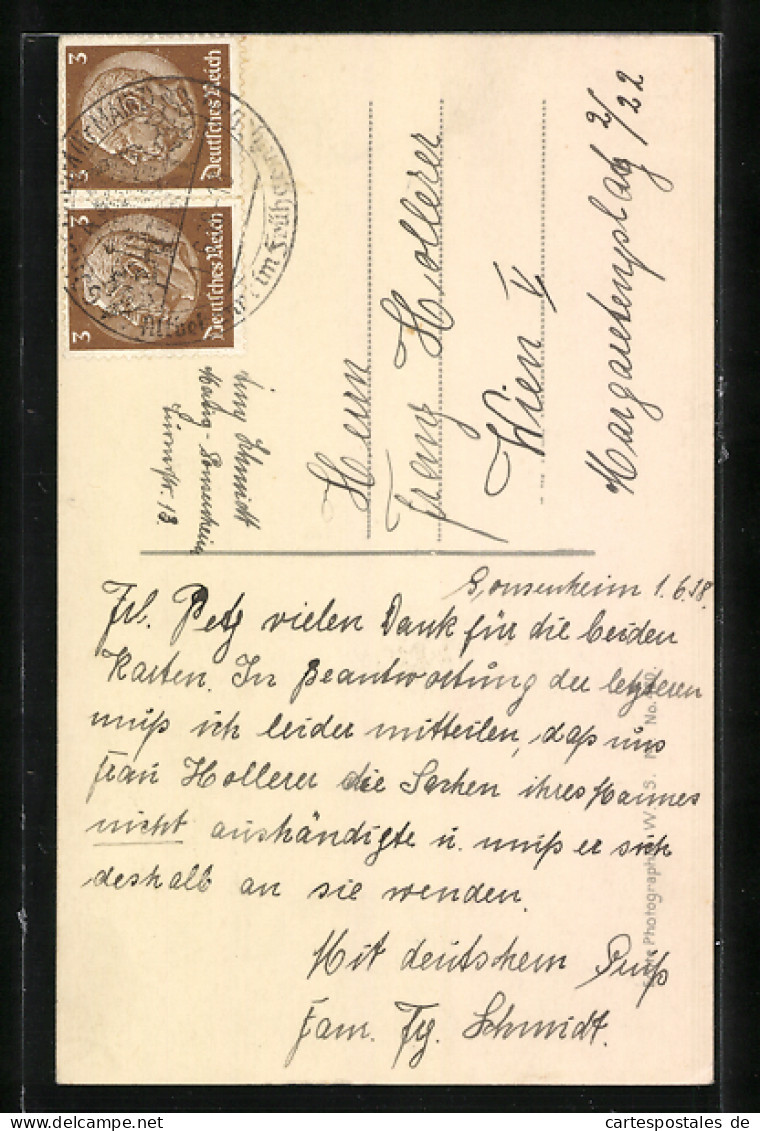 3
Deutsches Reich
3
Deutsches Reich
(MAIN)
im Früh
Schmidt
Mainz-Gonsenheim
13.
Herrn
Franz Hollerer
Wien V
Margaretenplatz 2/22
Gonsenheim 1.6.38.
Frl. Petz vielen Dank für die beiden
Karten. In Beantwortung der letzteren
muß ich leider mitteilen, daß uns
Frau Hollerer die Sachen ihres Mannes
nicht aushändigte u. muß er sich
deshalb an sie wenden.
Mit deutschem Gruß
Fam. Fg. Schmidt.
Photograph W. S. No.
cartespostales de